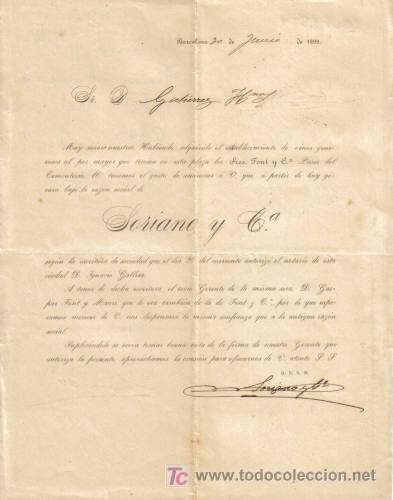 Barcelona 30 de Junio de 1899.
Sr. D. Gutierrez Hnos
Muy señor nuestro: Habiendo adquirido el establecimiento de vinos
al por mayor que tenían en esta plaza los Sres Font y Cª Paseo del
Cementerio, 10, tenemos el gusto de anunciar á V. que á partir de hoy
girará bajo la razón social de
Soriano y Cª
según la escritura de sociedad que el día 20 del corriente autorizó el notario de esta
ciudad D. Ignacio Gallisa.
A tenor de dicha escritura, el único Gerente de la misma será D. Gas-
par Font y que lo era también de la de Font y Cª, por lo que espe-
ramos merecer de V. nos dispensará la misma confianza que á la antigua razón
social.
Suplicándole se sirva tomar buena nota de la firma de nuestro Gerente que
autoriza la presente, aprovechamos la ocasión para ofrecernos de V. atentos S. S.
Q. B. S. M.
Soriano y Cª
TC todocoleccion
www.todocoleccion.net